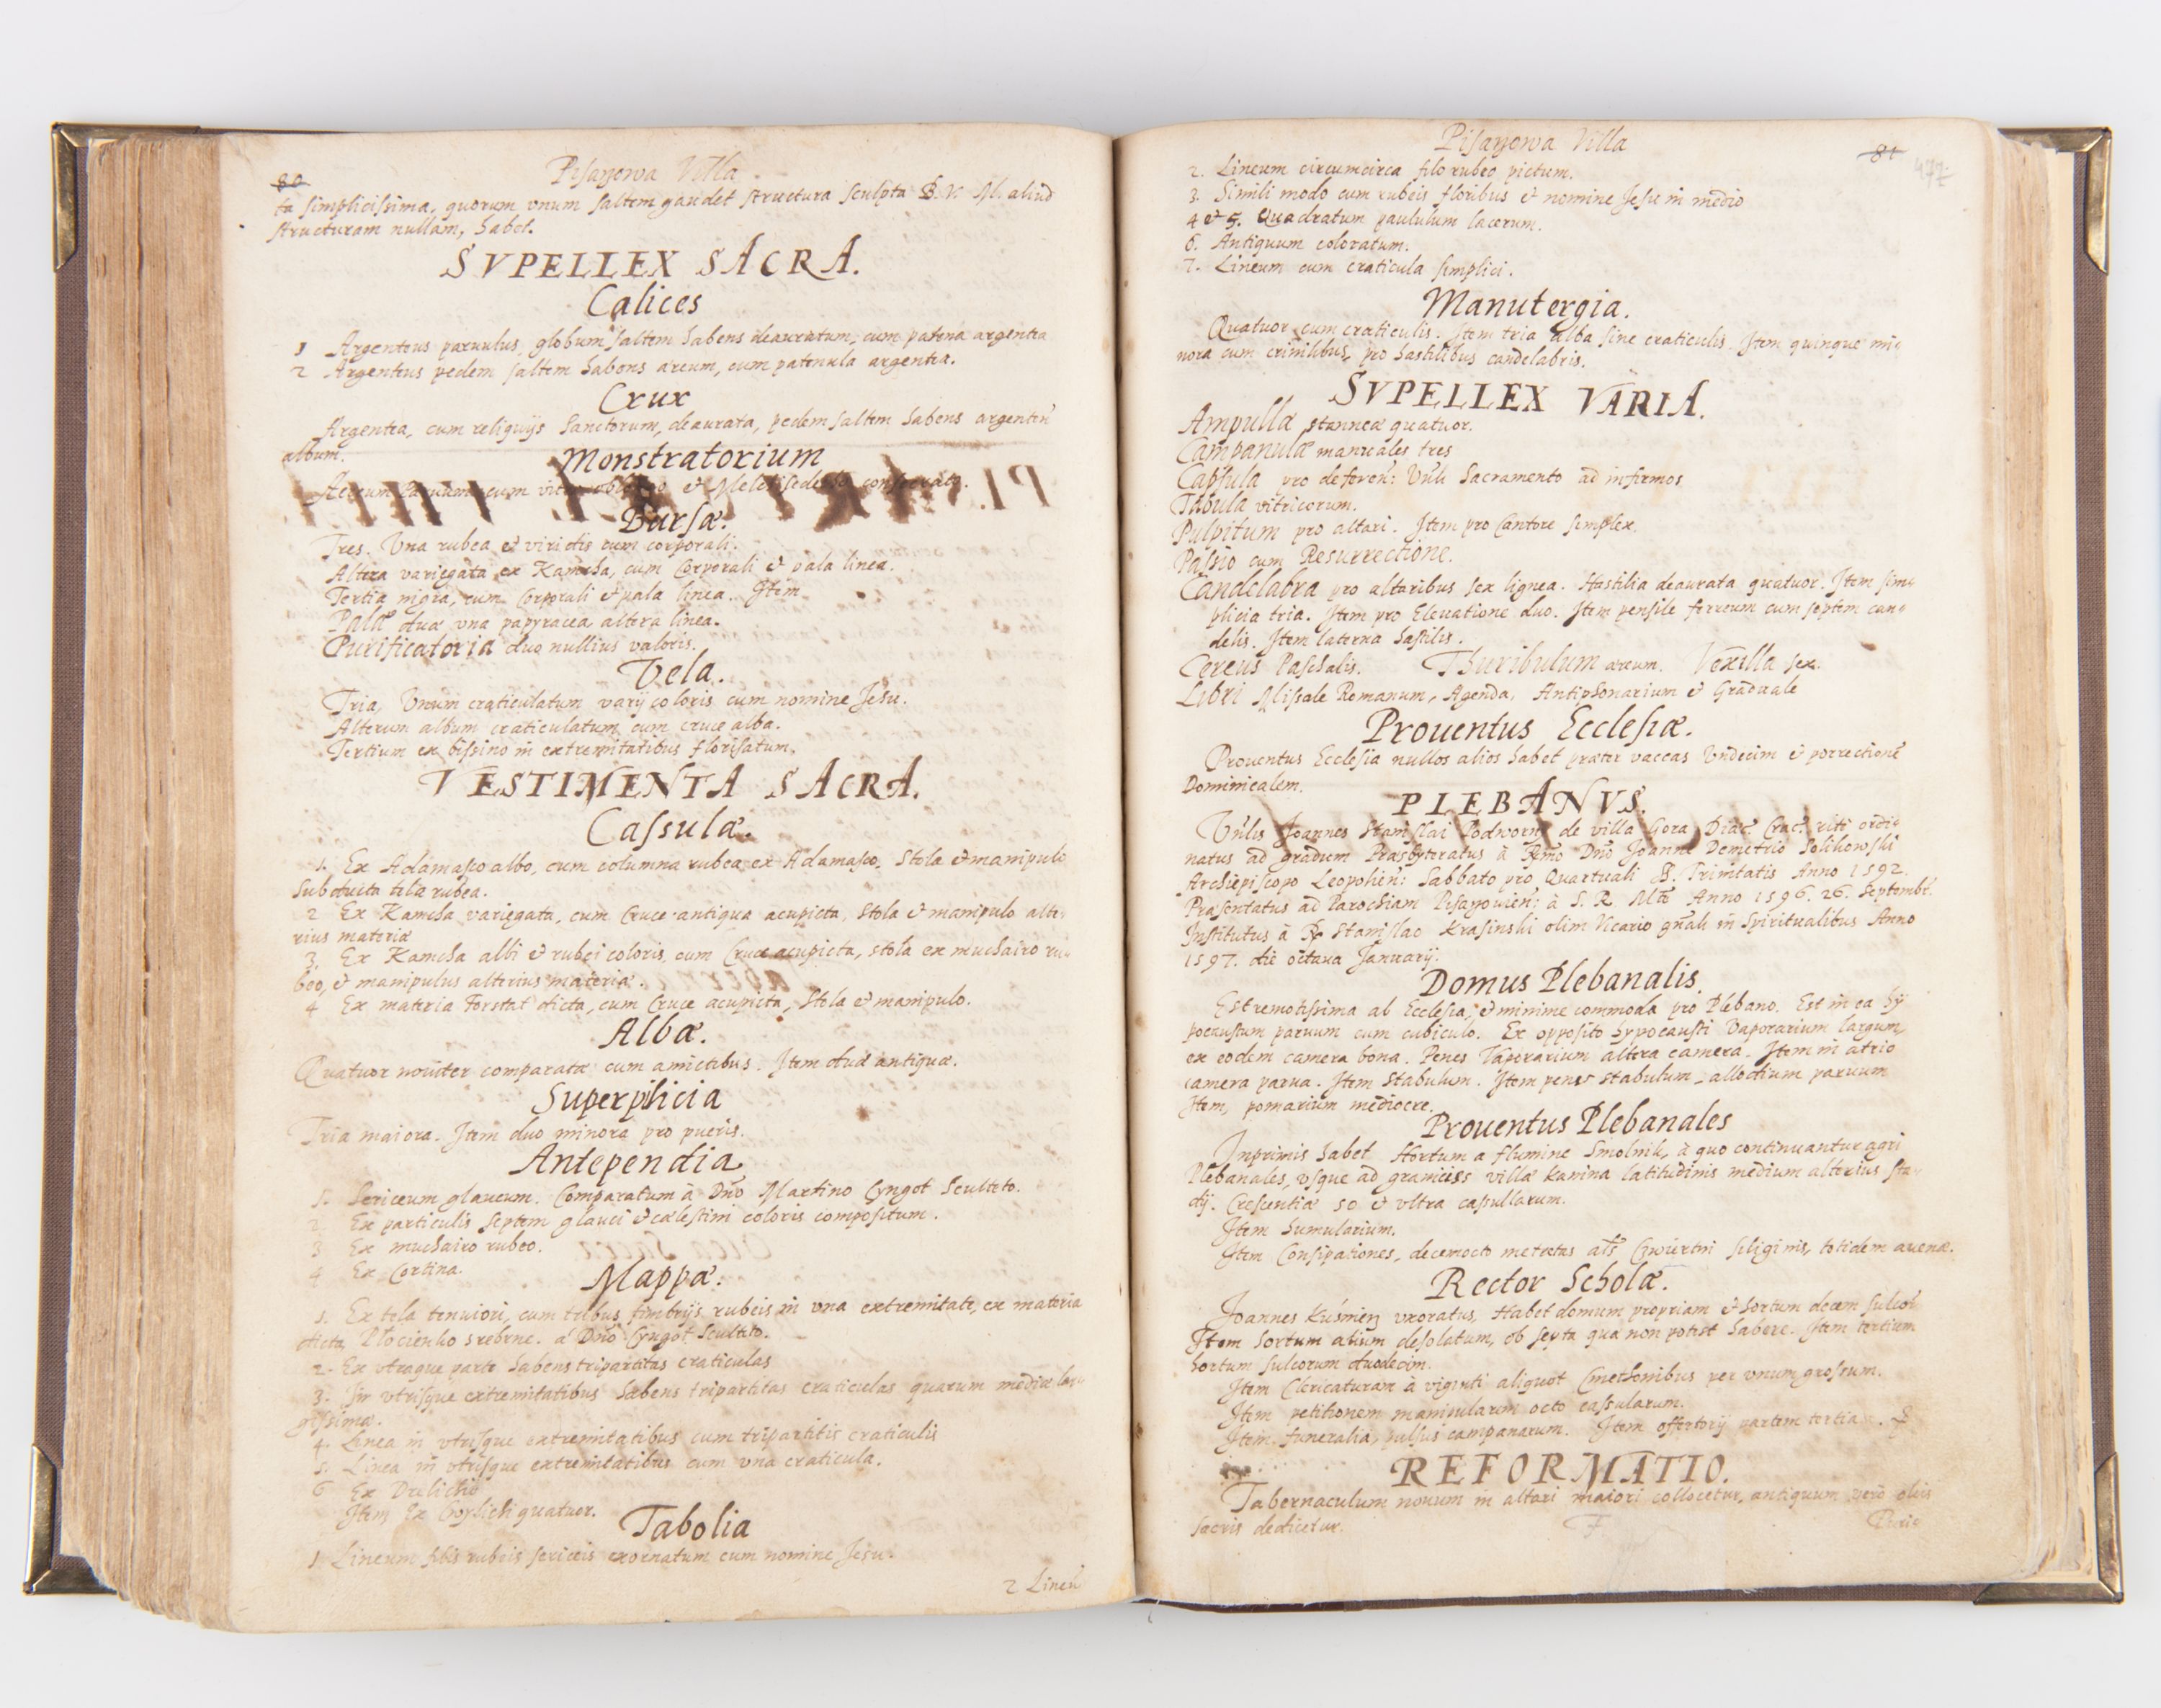 80
Pisarzowa Villa
ta simplicissima, quorum vnum saltem gaudet structura sculpta B. V. M. aliud
structuram nullam, habet.
SVPELLEX SACRA.
Calices
1 Argenteus paruulus, globum saltem habens deauratum, cum patena argentea
2 Argenteus pedem saltem habens æreum, cum patenula argentea.
Crux
Argentea, cum reliquijs Sanctorum, deaurata, pedem saltem habens argenteũ
album.
Monstratorium
cum vitro et Melchisedecho
Bursæ.
Tres. Vna rubea et viridis cum corporali.
Altera variegata ex Kamcha, cum Corporali et pala linea.
Tertia nigra, cum Corporali et pala linea. Item
Palæ duæ vna papyracea altera linea.
Purificatoria duo nullius valoris.
Vela.
Tria, Vnum craticulatum varij coloris cum nomine Jesu.
Alterum album craticulatum cum cruce alba.
Tertium ex bissino in extremitatibus florisatum.
VESTIMENTA SACRA.
Casulæ.
1. Ex Adamasco albo, cum columna rubea ex Adamasco, Stola et manipulo
subducta tela rubea.
2 Ex Kamcha variegata, cum Cruce antiqua acupicta, Stola et manipulo alte-
rius materiæ
3. Ex Kamcha albi et rubei coloris, cum Cruce acupicta, stola ex muchairo ru-
beo, et manipulus alterius materiæ.
4 Ex materia Forstat dicta, cum Cruce acupicta, Stola et manipulo.
Albæ.
Quatuor nouiter comparatæ cum amictibus. Item duæ antiquæ.
Superplicia
Tria maiora. Item duo minora pro pueris.
Antependia
1. Sericeum glaucum. Comparatum à Dño Martino Cyngot Sculteto.
2 Ex particulis septem glauci et cœlestini coloris compositum.
3 Ex muchairo rubeo.
4 Ex Cortina.
Mappæ.
1. Ex tela tenuiori, cum tribus fimbrijs rubeis in vna extremitate, ex materia
dicta Płocienko srebrne. à Dño Cyngot Sculteto.
2. Ex vtraque parte habens tripartitas craticulas
3. In vtrisque extremitatibus habens tripartitas craticulas quarum mediæ lar-
gissimæ.
4. Linea in vtrisque extremitatibus cum tripartitis craticulis
5. Linea in vtrisque extremitatibus cum vna craticula.
6 Ex Drelicho
Item Ex quatuor.
Tabolia
1 Lineum filis rubeis sericeis exornatum cum nomine Jesu.
2 Lineũ
81
477
Pisarzowa Villa
2. Lineum circumcirca filo rubeo pictum.
3. Simili modo cum rubeis floribus et nomine Jesu in medio
4 et 5. Quadratum paululum lacerum.
6. Antiquum coloratum.
7. Lineum cum craticula simplici.
Manutergia.
Quatuor cum craticulis. Item tria alba sine craticulis. Item quinque mi-
nora cum crinilibus, pro hastilibus candelabris.
SVPELLEX VARIA.
Ampullæ stanneæ quatuor.
Campanulæ manuales tres
Capsula pro deferen: Vñli Sacramento ad infirmos
Tabula vitricorum.
Pulpitum pro altari. Item pro Cantore simplex.
Passio cum Resurrectione.
Candelabra pro altaribus sex lignea. Hastilia deaurata quatuor. Item sim-
plicia tria. Item pro Eleuatione duo. Item pensile ferreum cum septem can-
delis. Item laterna hastilis.
Cereus Paschalis. Thuribulum æreum. Vexilla sex.
Libri Missale Romanum, Agenda, Antiphonarium et Graduale
Prouentus Ecclesiæ.
Prouentus Ecclesia nullos alios habet præter vaccas Vndecim et porrectionẽ
Dominicalem.
PLEBANVS.
Vñlis Joannes Stanislai Podworni de villa Gora Diæc. Crac. riti ordi-
natus ad gradum Præsbyteratus à Rṁo Dño Joanne Demetrio Solikowski
Archiepiscopo Leopolien: Sabbato pro Quartuali S. Trinitatis Anno 1592.
Præsentatus ad Parochiam Pisarzouien: à S. R. Mte Anno 1596. 26. Septembr.
Institutus à R. Stanislao Krasinski olim Vicario gnali in Spiritualibus Anno
1597. die octaua Januarij.
Domus Plebanalis.
Est remotissima ab Ecclesia, et minime commoda pro Plebano. Est in ea hy
pocaustum paruum cum cubiculo. Ex opposito hypocausti Vaporarium largum
ex eodem camera bona. Penes Vaporarium altera camera. Item in atrio
camera parua. Item Stabulum. Item penes stabulum allodium paruum
Item, pomarium mediocre.
Prouentus Plebanales
Inprimis habet Hortum a flumine Smolnik, à quo continuantur agri
Plebanales, vsque ad granicies villæ Kanina latitudinis medium alterius sta-
dij. Crescentiæ 50 et vltra cassullarum.
Item humularium.
Item Consipationes, decemocto metretas als Cwiertni siliginis, totidem auenæ.
Rector Scholæ.
Joannes Kusmierz vxoratus, Habet domum propriam et hortum decem sulcor̃
Item hortum alium desolatum, ob septa quæ non potest habere. Item tertium
hortum sulcorum duodecim.
Item Clericaturam à viginti aliquot Cmethonibus per vnum grossum.
Item petitionem manipularum octo cassularum.
Item funeralia, pulsus campanarum. Item offertorij partem tertia.
REFORMATIO.
Tabernaculum nouum in altari maiori collocetur, antiquum verò oleis
sacris dedicetur.